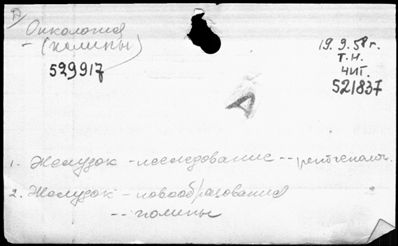 Онкология
- (полипы)
529917
19.9.58 г.
Т.Н.
ЧИГ.
521837
1. Желудок - исследование -- рентгенолог.
2. Желудок - новообразования
-- полипы